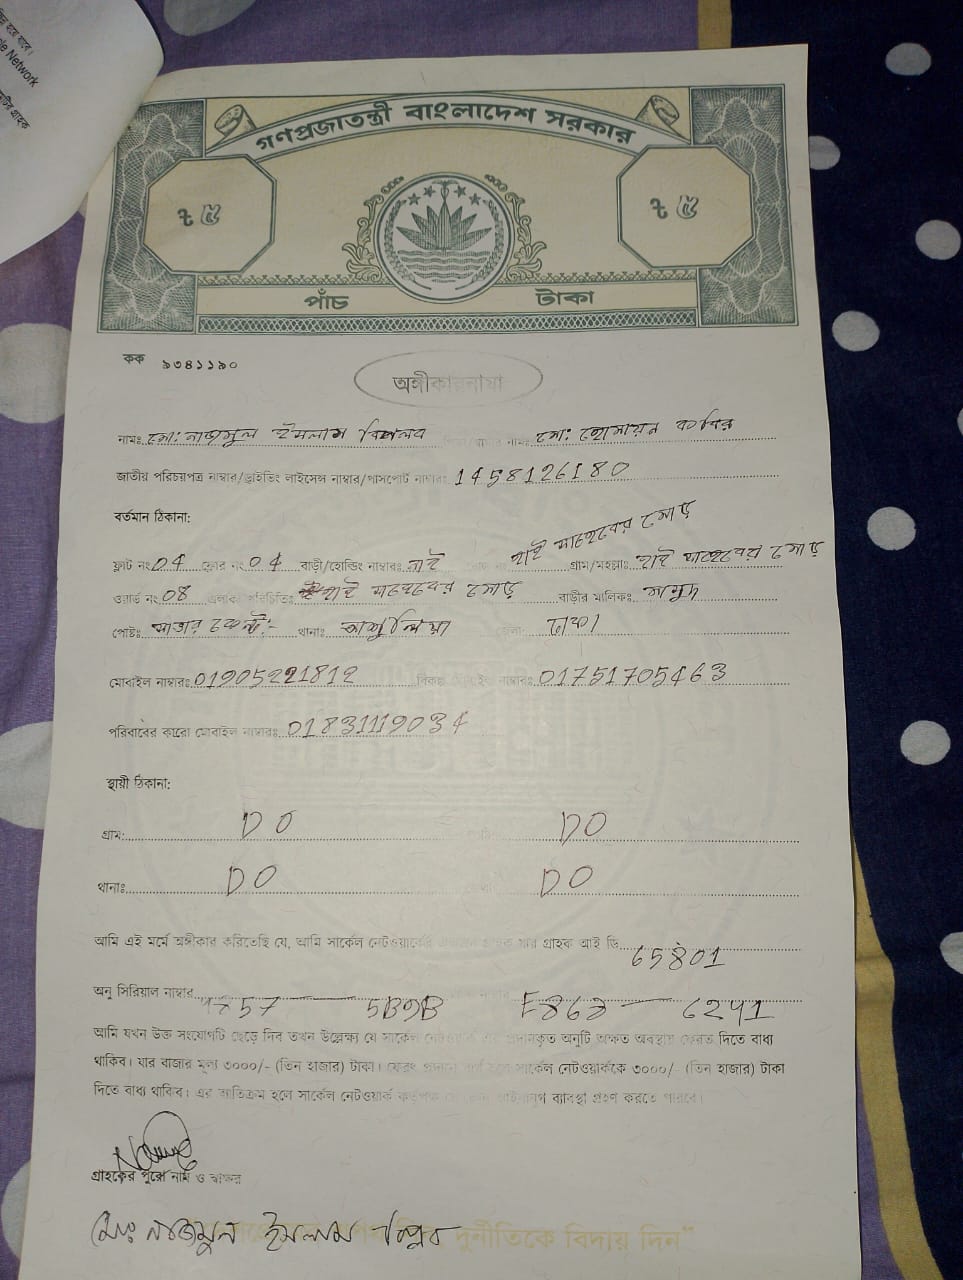 le Network
গণপ্রজাতন্ত্রী বাংলাদেশ সরকার
৳ ৫ ৳ ৫
পাঁচ টাকা
কক ৯৩৪১১৯০
অঙ্গীকারনামা
নামঃ মো: নাজমুল ইসলাম বিপ্লব নামঃ মো: হোসায়ন কবির
জাতীয় পরিচয়পত্র নাম্বার/ড্রাইভিং লাইসেন্স নাম্বার/পাসপোর্ট নাম্বারঃ 1458126180
বর্তমান ঠিকানা:
হাই সাহেবের মোড়
ফ্লাট নং 04 ফ্লোর নং 04 বাড়ী/হোল্ডিং নাম্বারঃ নাই গ্রাম/মহল্লাঃ হাই সাহেবের মোড়
ওয়ার্ড নং 08 এলাকা পরিচিতিঃ হাই সাহেবের মোড় বাড়ীর মালিকঃ
পোষ্টঃ সাভার কেন্ট:- থানাঃ আশুলিয়া জেলা: ঢাকা
মোবাইল নাম্বারঃ 01905221812 বিকল্প নাম্বারঃ 01751705463
পরিবারের কারো মোবাইল নাম্বারঃ 01831119034
স্থায়ী ঠিকানা:
গ্রাম: DO DO
থানাঃ DO DO
আমি এই মর্মে অঙ্গীকার করিতেছি যে, আমি সার্কেল নেটওয়ার্কের গ্রাহক যার গ্রাহক আই ডি 65801
অনু সিরিয়াল নাম্বার 5B9B 6241
আমি যখন উক্ত সংযোগটি ছেড়ে দিব তখন উল্লেক্ষ্য যে সার্কেল নেটওয়ার্ক এর প্রদানকৃত অনুটি অক্ষত অবস্থায় ফেরত দিতে বাধ্য
থাকিব। যার বাজার মূল্য ৩০০০/- (তিন হাজার) টাকা। ফেরৎ প্রদানে ব্যর্থ হলে সার্কেল নেটওয়ার্ককে ৩০০০/- (তিন হাজার) টাকা
দিতে বাধ্য থাকিব। এর ব্যতিক্রম হলে সার্কেল নেটওয়ার্ক কর্তৃপক্ষ আইনানুগ ব্যবস্থা গ্রহণ করতে পারবে।
গ্রাহকের পুরো নাম ও স্বাক্ষর
মোঃ নাজমুল ইসলাম বিপ্লব দুর্নীতিকে বিদায় দিন"